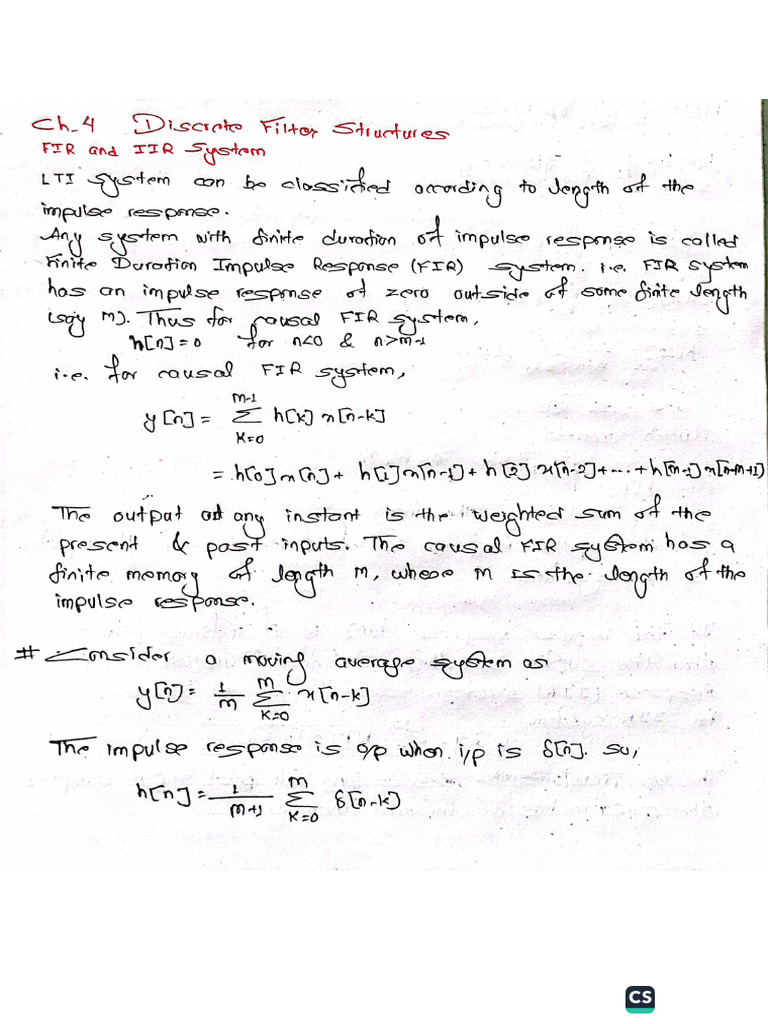 Ch_4 Discrete Filter Structures
FIR and IIR System
LTI System can be classified according to length of the
impulse response.
Any system with finite duration of impulse response is called
Finite Duration Impulse Response (FIR) system. i.e. FIR system
has an impulse response of zero outside of some finite length
(say M). Thus for causal FIR system,
h[n] = 0 for n<0 & n>M-1
i.e. for causal FIR system,
y[n] = \sum_{k=0}^{M-1} h[k] x[n-k]
= h[0]x[n] + h[1]x[n-1] + h[2] x[n-2] + ... + h[M-1]x[n-M+1]
The output at any instant is the weighted sum of the
present & past inputs. The causal FIR system has a
finite memory of length M, where M is the length of the
impulse response.
# Consider a moving average system as
y[n] = \frac{1}{M} \sum_{k=0}^{M} x[n-k]
The impulse response is o/p when i/p is δ[n]. so,
h[n] = \frac{1}{M+1} \sum_{k=0}^{M} δ[n-k]
CS